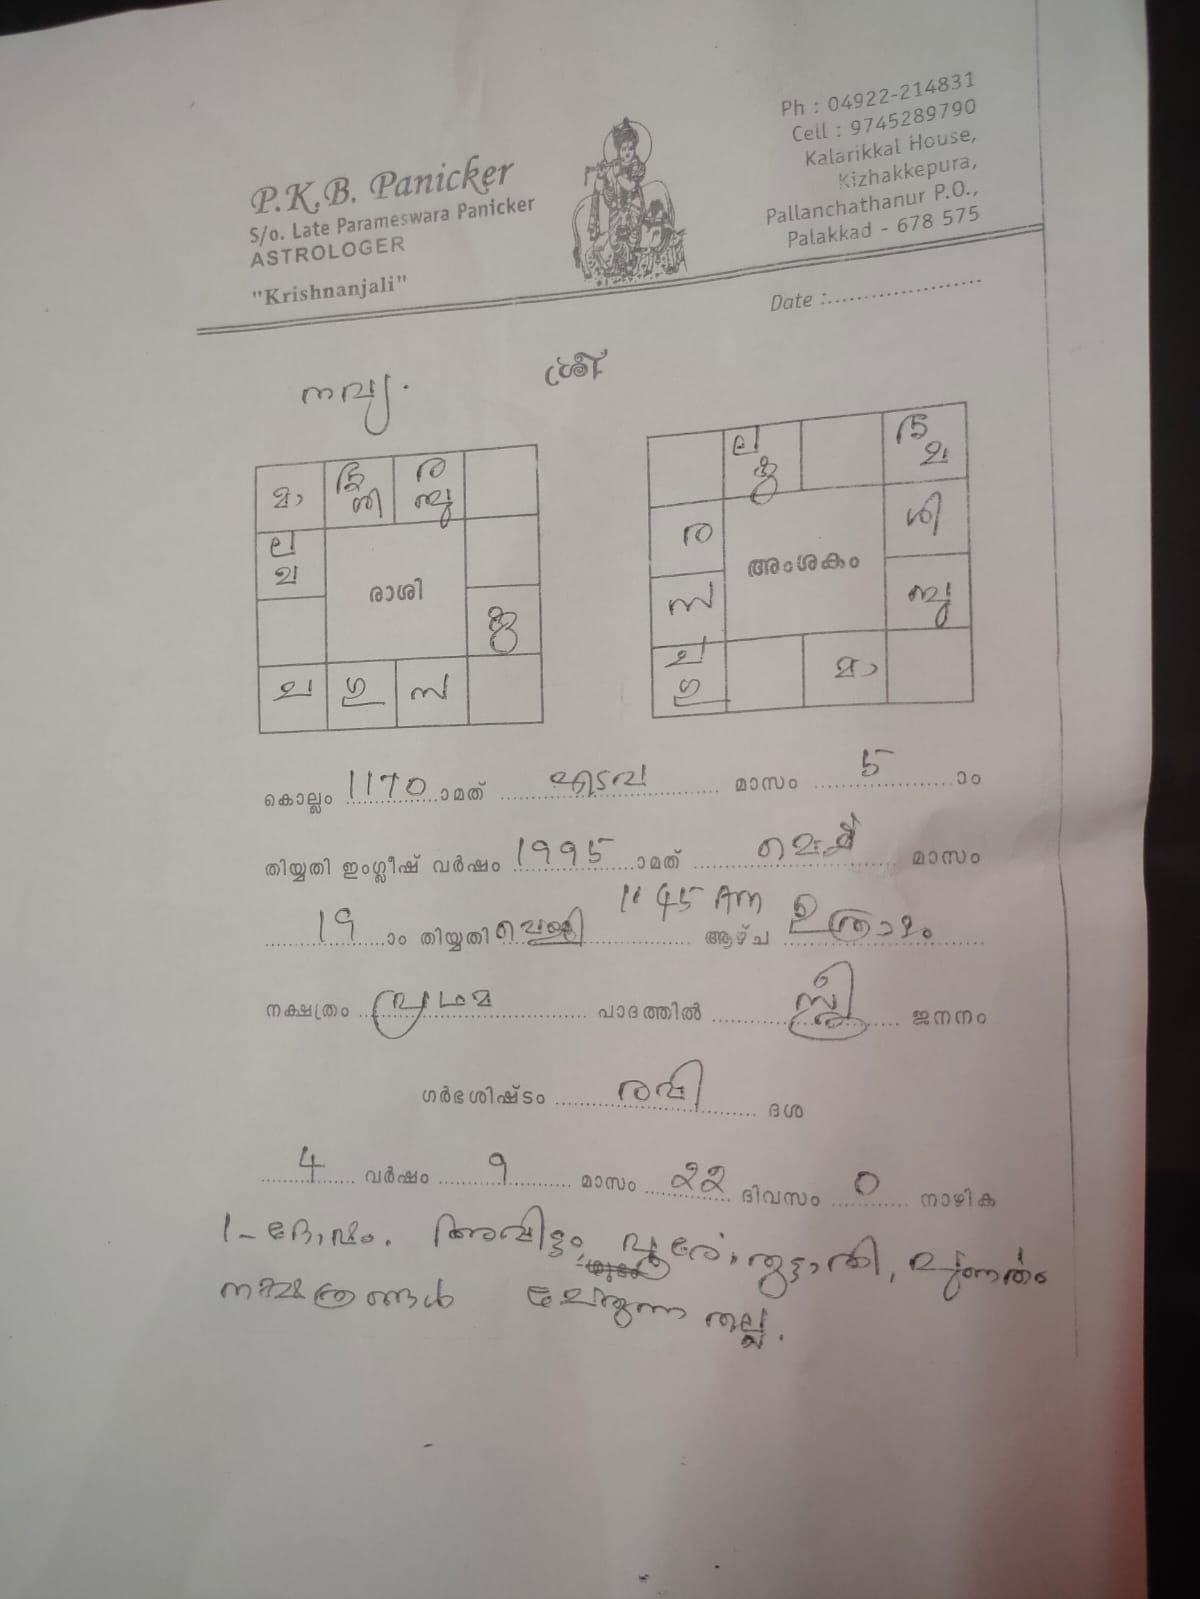 P.K.B. Panicker
S/o. Late Parameswara Panicker
ASTROLOGER
"Krishnanjali"
Ph : 04922-214831
Cell : 9745289790
Kalarikkal House,
Kizhakkepura,
Pallanchathanur P.O.,
Palakkad - 678 575
Date :.....................
നവ്യ. ശ്രീ
മാ ശി ര ബു
ല
രാശി
കു
ഗു സ
ല കു
ര ശി
അംശകം
സ ബു
ഗു മാ
കൊല്ലം 1170 ാമത് എടവ മാസം 5 ാം
തിയ്യതി ഇംഗ്ലീഷ് വർഷം 1995 ാമത് മെയ് മാസം
19 ാം തിയ്യതി വെള്ളി 11 45 Am ആഴ്ച ഉത്രാടം
നക്ഷത്രം പ്രഥമ പാദത്തിൽ സ്ത്രീ ജനനം
ഗർഭശിഷ്ടം രവി ദശ
4 വർഷം 9 മാസം 22 ദിവസം 0 നാഴിക
1- ദോഷം. അവിട്ടം, പൂരോരുട്ടാതി, പുണർതം
നക്ഷത്രങ്ങൾ ചേരുന്നതല്ല.